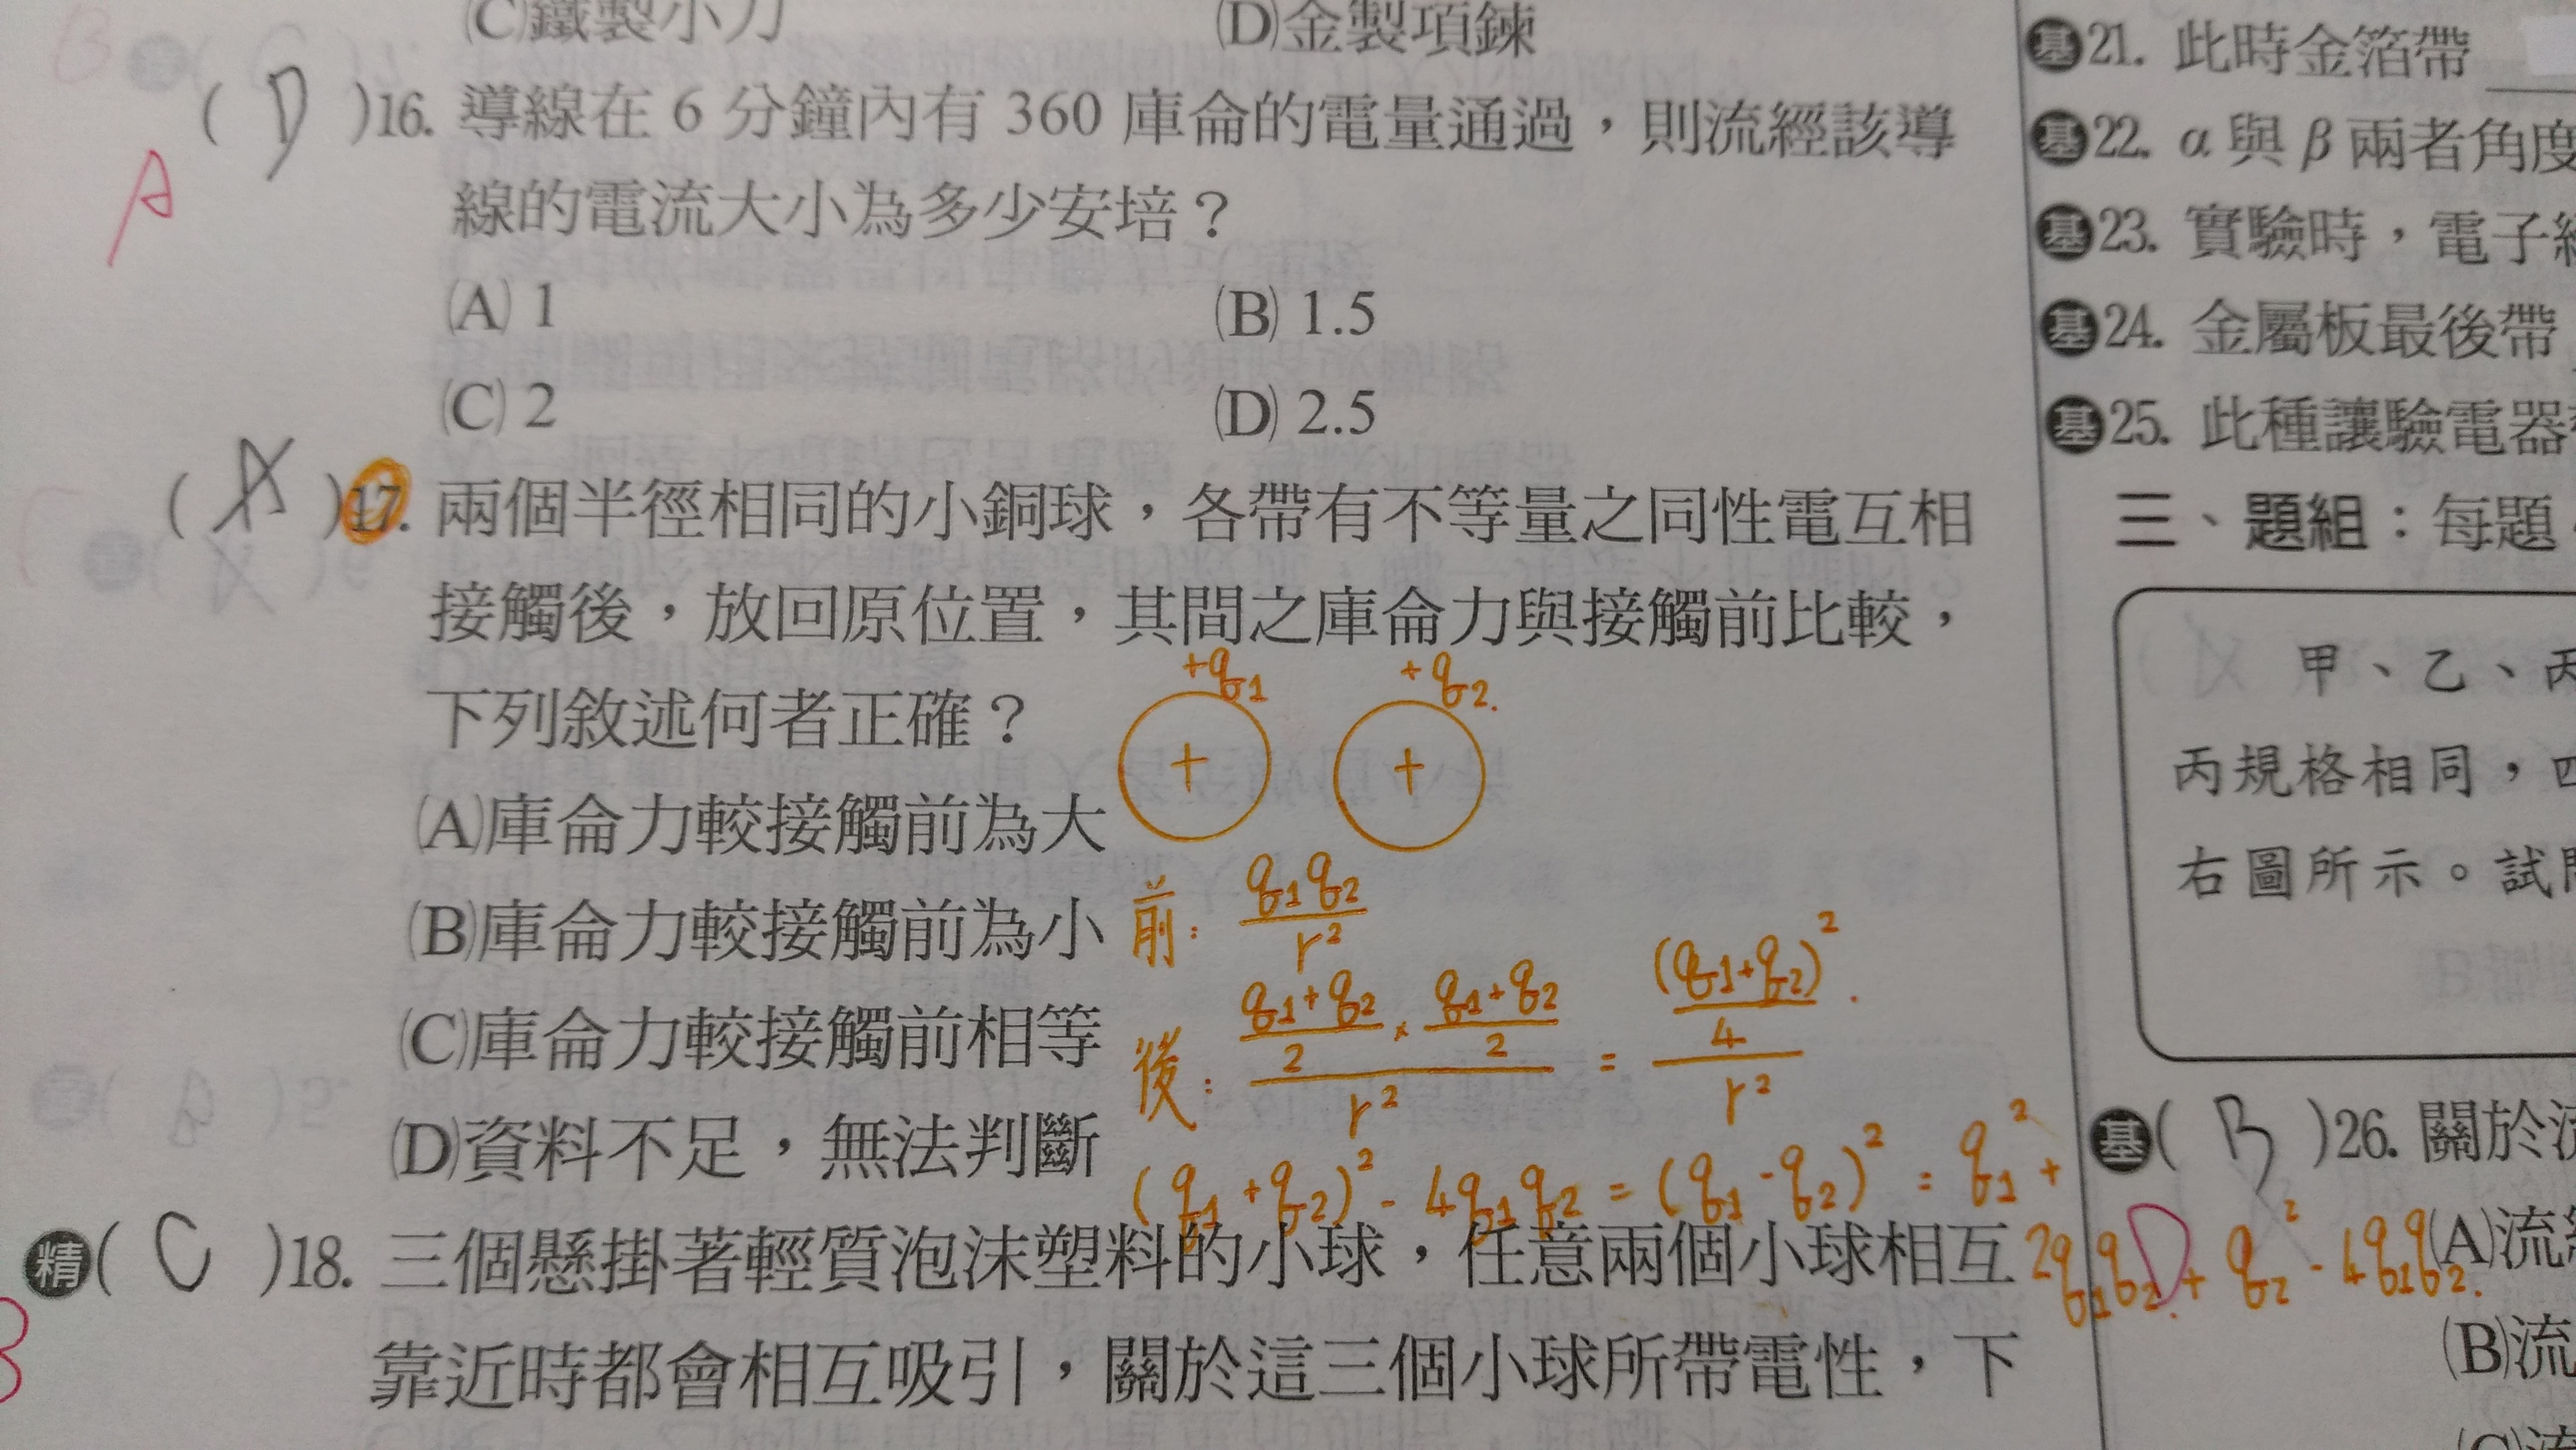 (C)鐵製小刀
(D)金製項鍊
( D )16. 導線在 6 分鐘內有 360 庫侖的電量通過，則流經該導
A
線的電流大小為多少安培？
(A) 1
(B) 1.5
(C) 2
(D) 2.5
( A )17. 兩個半徑相同的小銅球，各帶有不等量之同性電互相
接觸後，放回原位置，其間之庫侖力與接觸前比較，
下列敘述何者正確？
+q1 +q2.
+ +
(A)庫侖力較接觸前為大
(B)庫侖力較接觸前為小
前： q1q2 / r²
(C)庫侖力較接觸前相等
後： (q1+q2)/2 × (q1+q2)/2 / r² = (q1+q2)²/4 / r²
(D)資料不足，無法判斷
(q1+q2)² - 4q1q2 = (q1-q2)² = q1² +
2q1q2 + q2² - 4q1q2.
精( C )18. 三個懸掛著輕質泡沫塑料的小球，任意兩個小球相互
B
靠近時都會相互吸引，關於這三個小球所帶電性，下
基21. 此時金箔帶
基22. α與β兩者角度
基23. 實驗時，電子
基24. 金屬板最後帶
基25. 此種讓驗電器
三、題組：每題
甲、乙、丙
丙規格相同，四
右圖所示。試問
基( B )26. 關於
D
(A)流
(B)流